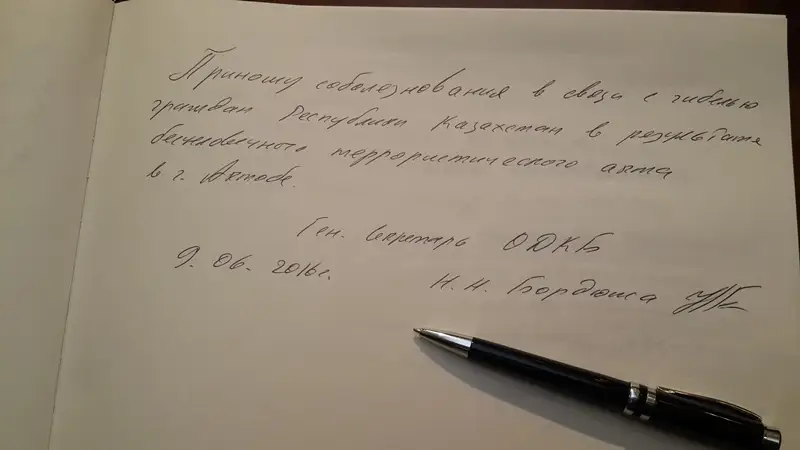 Приношу соболезнования в связи с гибелью
граждан Республики Казахстан в результате
бесчеловечного террористического акта
в г. Актобе.
Ген. Секретарь ОДКБ
9.06.2016г. Н.Н. Бордюжа